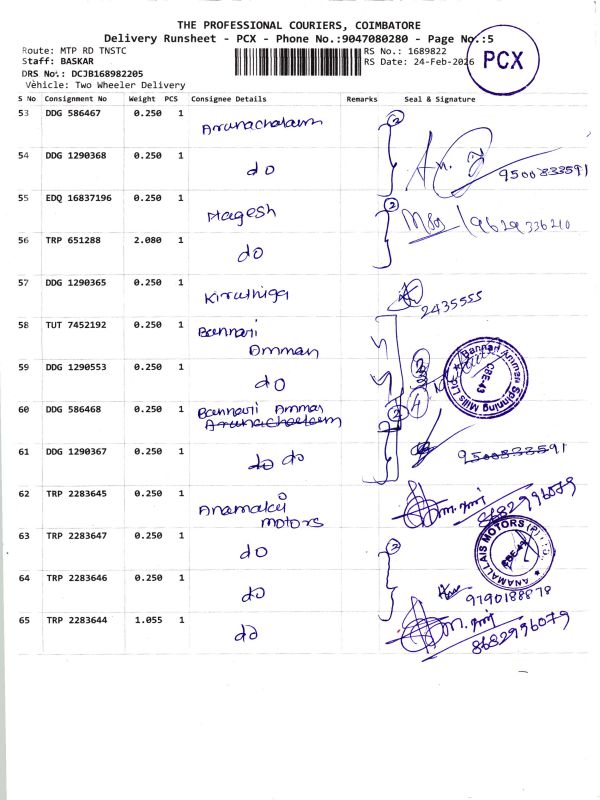 THE PROFESSIONAL COURIERS, COIMBATORE
Delivery Runsheet - PCX - Phone No.:9047080280 - Page No.:5
Route: MTP RD TNSTC
RS No.: 1689822
Staff: BASKAR
RS Date: 24-Feb-2026
PCX
DRS No.: DCJB168982205
Vehicle: Two Wheeler Delivery
S No Consignment No Weight PCS Consignee Details Remarks Seal & Signature
53 DDG 586467 0.250 1 Arunachalaem 2
54 DDG 1290368 0.250 1 do 9500833591
55 EDQ 16837196 0.250 1 Magesh 2 9629336210
56 TRP 651288 2.080 1 do
57 DDG 1290365 0.250 1 Kiruthiga 2435555
58 TUT 7452192 0.250 1 Bannari Amman
59 DDG 1290553 0.250 1 do
Bannari Amman Spinning Mills Ltd. CBE-43
60 DDG 586468 0.250 1 Bannari Amman Arunachalaem 2
61 DDG 1290367 0.250 1 do do 9500833591
62 TRP 2283645 0.250 1 Anamalai Motors 8682996079
63 TRP 2283647 0.250 1 do 2
ANAMALLAIS MOTORS (P) LTD. CBE-43
64 TRP 2283646 0.250 1 do 9790188878
65 TRP 2283644 1.055 1 do 8682996079